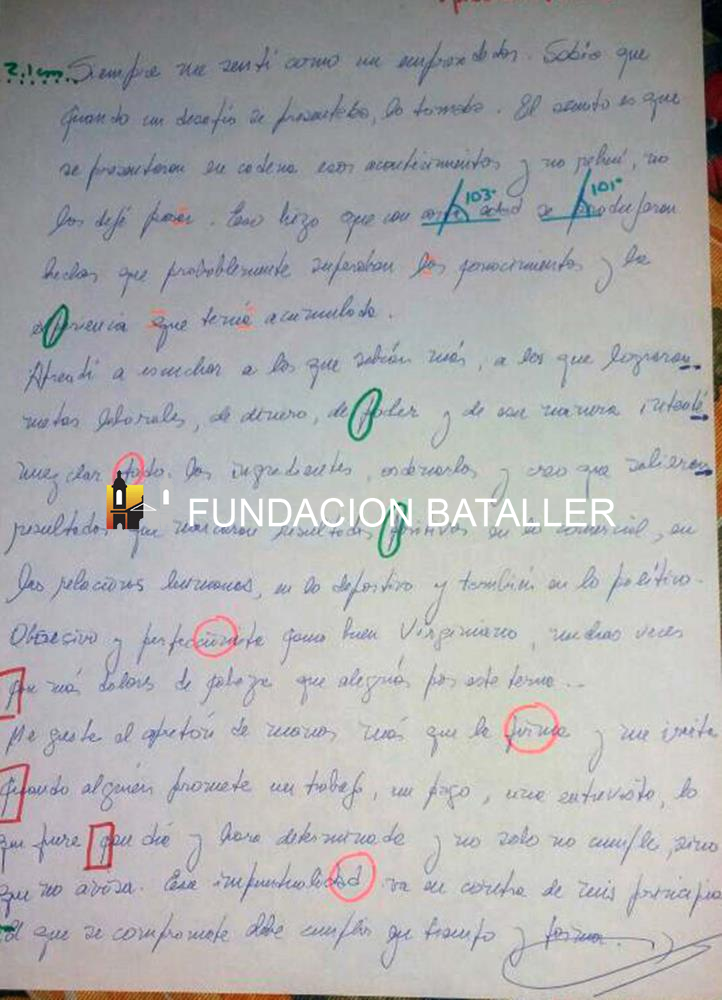 2.1 cm Siempre me sentí como un emprendedor. Sabía que
cuando un desafío se presentaba, lo tomaba. El asunto es que
se presentaron en cadena esos acontecimientos y no rehuí, no
los dejé pasar. Eso hizo que con corta edad se produjeran
103° 101°
hechos que probablemente superaban los conocimientos y la
experiencia que tenía acumulada.
Aprendí a escuchar a los que sabían más, a los que lograron
metas laborales, de dinero, de poder y de esa manera intenté
mezclar todo. los ingredientes, ordenarlos y creo que salieron
FUNDACION BATALLER
resultados que marcaron resultados positivos en lo comercial, en
las relaciones humanas, en lo deportivo y también en lo político.
Obsesivo y perfeccionista como buen Virginiano, muchas veces
son más dolores de cabeza que alegrías por este tema...
Me gusta el apretón de manos más que la firma y me irrita
cuando alguien promete un trabajo, un pago, una entrevista, lo
que fuere con día y hora determinada y no solo no cumple, sino
que no avisa. Esa impuntualidad va en contra de mis principio
el que se compromete debe cumplir en tiempo y forma.